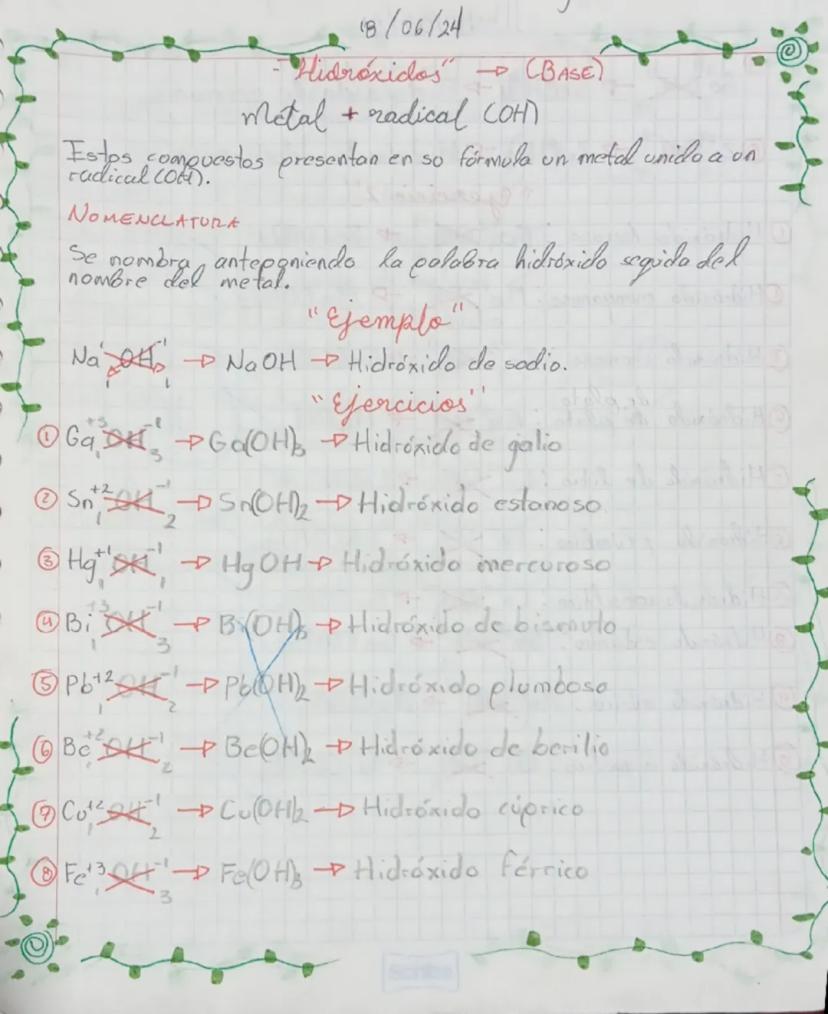 18/06/24
- "Hidróxidos" → (BASE)
Metal + radical (OH)
Estos compuestos presentan en su fórmula un metal unido a un
radical (OH).
NOMENCLATURA
Se nombra anteponiendo la palabra hidróxido seguida del
nombre del metal.
"Ejemplo"
Na⁺¹ OH⁻¹ → NaOH → Hidróxido de sodio.
"Ejercicios"
① Ga⁺³ OH⁻¹ → Ga(OH)₃ → Hidróxido de galio
② Sn⁺² OH⁻¹ → Sn(OH)₂ → Hidróxido estanoso
③ Hg⁺¹ OH⁻¹ → HgOH → Hidróxido mercuroso
④ Bi⁺³ OH⁻¹ → Bi(OH)₃ → Hidróxido de bismuto
⑤ Pb⁺² OH⁻¹ → Pb(OH)₂ → Hidróxido plumboso
⑥ Be⁺² OH⁻¹ → Be(OH)₂ → Hidróxido de berilio
⑦ Cu⁺² OH⁻¹ → Cu(OH)₂ → Hidróxido cúprico
⑧ Fe⁺³ OH⁻¹ → Fe(OH)₃ → Hidróxido férrico